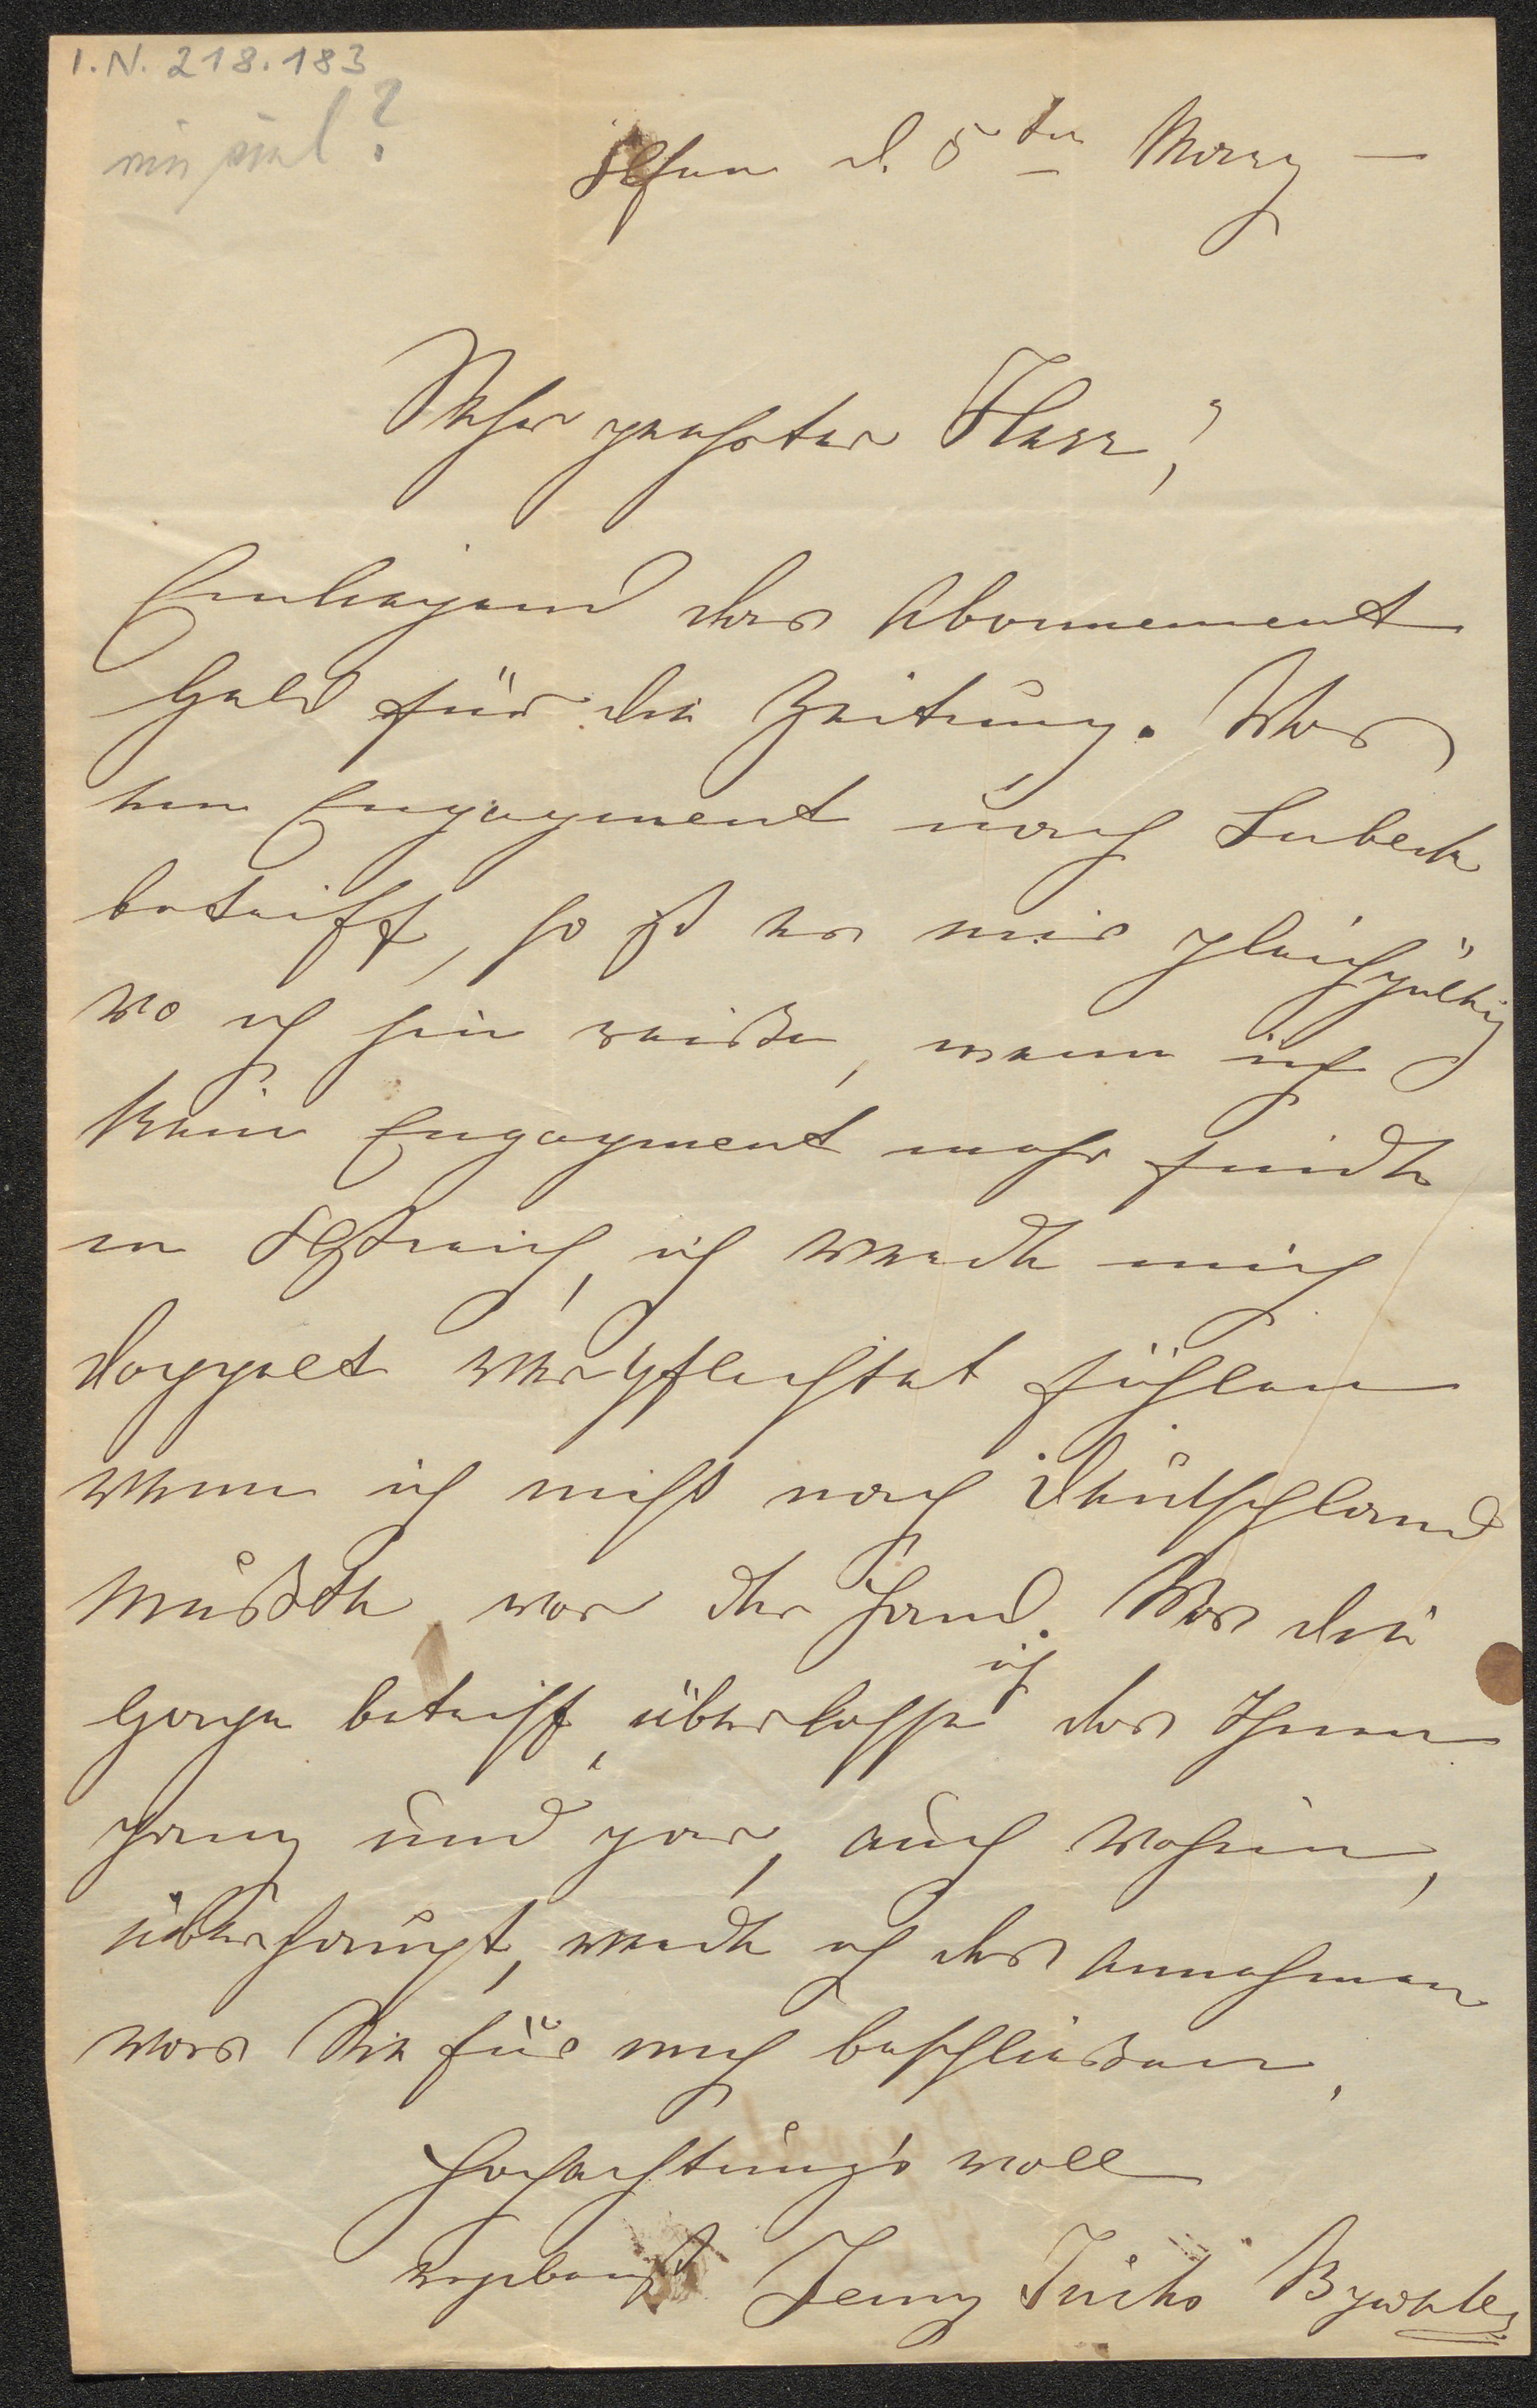 I.N. 218.183
d. 5ten März —
Sehr geehrter Herr!
Einliegend das Abonnement
Geld für die Zeitung. Was
ein Engagment nach Lubeck
betrifft, so ist es mir gleichgültig
wo ich hin reiße, wenn ich
kein Engagment mehr finde
in Östreich, ich werde mich
doppelt verpflichtet fühlen
wenn ich nicht nach Deutschland
müßte vor der Hand. Was die
Gage betrifft, überlasse ich das Ihnen
ganz und gar, auch wohin,
überhaupt, werde ich das annehmen
was Sie für mich beschließen,
Hochachtung's voll
ergebenst Jenny